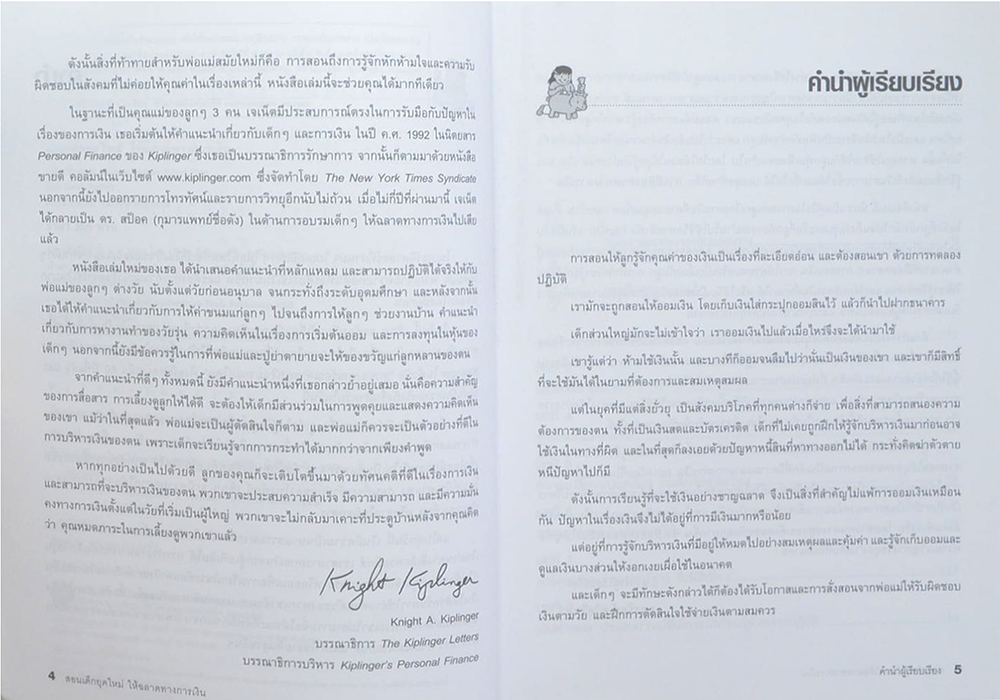 ดังนั้นสิ่งที่ท้าทายสำหรับพ่อแม่สมัยใหม่ก็คือ การสอนถึงการรู้จักหักห้ามใจและความรับ
ผิดชอบในสังคมที่ไม่ค่อยให้คุณค่าในเรื่องเหล่านี้ หนังสือเล่มนี้จะช่วยคุณได้มากทีเดียว
ในฐานะที่เป็นคุณแม่ของลูกๆ 3 คน เจเน็ตมีประสบการณ์ตรงในการรับมือกับปัญหาใน
เรื่องของการเงิน เธอเริ่มต้นให้คำแนะนำเกี่ยวกับเด็กๆ และการเงิน ในปี ค.ศ. 1992 ในนิตยสาร
Personal Finance ของ Kiplinger ซึ่งเธอเป็นบรรณาธิการรักษาการ จากนั้นก็ตามมาด้วยหนังสือ
ขายดี คอลัมน์ในเว็บไซต์ www.kiplinger.com ซึ่งจัดทำโดย The New York Times Syndicate
นอกจากนี้ยังไปออกรายการโทรทัศน์และรายการวิทยุอีกนับไม่ถ้วน เมื่อไม่กี่ปีที่ผ่านมานี้ เจเน็ต
ได้กลายเป็น ดร. สป็อค (กุมารแพทย์ชื่อดัง) ในด้านการอบรมเด็กๆ ให้ฉลาดทางการเงินไปเสีย
แล้ว
หนังสือเล่มใหม่ของเธอ ได้นำเสนอคำแนะนำที่หลักแหลม และสามารถปฏิบัติได้จริงให้กับ
พ่อแม่ของลูกๆ ต่างวัย นับตั้งแต่วัยก่อนอนุบาล จนกระทั่งถึงระดับอุดมศึกษา และหลังจากนั้น
เธอได้ให้คำแนะนำเกี่ยวกับการให้ค่าขนมแก่ลูกๆ ไปจนถึงการให้ลูกๆ ช่วยงานบ้าน คำแนะนำ
เกี่ยวกับการหางานทำของวัยรุ่น ความคิดเห็นในเรื่องการเริ่มต้นออม และการลงทุนในหุ้นของ
เด็กๆ นอกจากนี้ยังมีข้อควรรู้ในการที่พ่อแม่และปู่ย่าตายายจะให้ของขวัญแก่ลูกหลานของตน
จากคำแนะนำที่ดีๆ ทั้งหมดนี้ ยังมีคำแนะนำหนึ่งที่เธอกล่าวย้ำอยู่เสมอ นั่นคือความสำคัญ
ของการสื่อสาร การเลี้ยงดูลูกให้ได้ดี จะต้องให้เด็กมีส่วนร่วมในการพูดคุยและแสดงความคิดเห็น
ของเขา แม้ว่าในที่สุดแล้ว พ่อแม่จะเป็นผู้ตัดสินใจก็ตาม และพ่อแม่ก็ควรจะเป็นตัวอย่างที่ดีใน
การบริหารเงินของตน เพราะเด็กจะเรียนรู้จากการกระทำได้มากกว่าจากเพียงคำพูด
หากทุกอย่างเป็นไปด้วยดี ลูกของคุณก็จะเติบโตขึ้นมาด้วยทัศนคติที่ดีในเรื่องการเงิน
และสามารถที่จะบริหารเงินของตน พวกเขาจะประสบความสำเร็จ มีความสามารถ และมีความมั่น
คงทางการเงินตั้งแต่ในวัยที่เริ่มเป็นผู้ใหญ่ พวกเขาจะไม่กลับมาเคาะที่ประตูบ้านหลังจากคุณคิด
ว่า คุณหมดภาระในการเลี้ยงดูพวกเขาแล้ว
Knight Kiplinger
Knight A. Kiplinger
บรรณาธิการ The Kiplinger Letters
บรรณาธิการบริหาร Kiplinger's Personal Finance
4 สอนเด็กยุคใหม่ ให้ฉลาดทางการเงิน
คำนำผู้เรียบเรียง
การสอนให้ลูกรู้จักคุณค่าของเงินเป็นเรื่องที่ละเอียดอ่อน และต้องสอนเขา ด้วยการทดลอง
ปฏิบัติ
เรามักจะถูกสอนให้ออมเงิน โดยเก็บเงินใส่กระปุกออมสินไว้ แล้วก็นำไปฝากธนาคาร
เด็กส่วนใหญ่มักจะไม่เข้าใจว่า เราออมเงินไปแล้วเมื่อไหร่จึงจะได้นำมาใช้
เขารู้แต่ว่า ห้ามใช้เงินนั้น และบางทีก็ออมจนลืมไปว่านั่นเป็นเงินของเขา และเขาก็มีสิทธิ์
ที่จะใช้มันได้ในยามที่ต้องการและสมเหตุสมผล
แต่ในยุคที่มีแต่สิ่งยั่วยุ เป็นสังคมบริโภคที่ทุกคนต่างก็จ่าย เพื่อสิ่งที่สามารถสนองความ
ต้องการของตน ทั้งที่เป็นเงินสดและบัตรเครดิต เด็กที่ไม่เคยถูกฝึกให้รู้จักบริหารเงินมาก่อนอาจ
ใช้เงินในทางที่ผิด และในที่สุดก็ลงเอยด้วยปัญหาหนี้สินที่หาทางออกไม่ได้ กระทั่งคิดฆ่าตัวตาย
หนีปัญหาไปก็มี
ดังนั้นการเรียนรู้ที่จะใช้เงินอย่างชาญฉลาด จึงเป็นสิ่งที่สำคัญไม่แพ้การออมเงินเหมือน
กัน ปัญหาในเรื่องเงินจึงไม่ได้อยู่ที่การมีเงินมากหรือน้อย
แต่อยู่ที่การรู้จักบริหารเงินที่มีอยู่ให้หมดไปอย่างสมเหตุผลและคุ้มค่า และรู้จักเก็บออมและ
ดูแลเงินบางส่วนให้งอกเงยเผื่อใช้ในอนาคต
และเด็กๆ จะมีทักษะดังกล่าวได้ก็ต้องได้รับโอกาสและการสั่งสอนจากพ่อแม่ให้รับผิดชอบ
เงินตามวัย และฝึกการตัดสินใจใช้จ่ายเงินตามสมควร
คำนำผู้เรียบเรียง 5